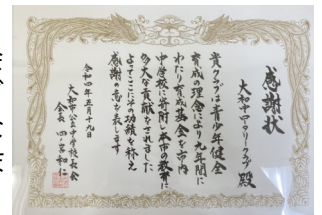 感謝状
大和中ロータリークラブ 殿
貴クラブは青少年健全
育成の理念により九年間に
わたり育成基金を市内
中学校に寄附し本市の教育に
多大な貢献をされました
よってここにその功績を称え
感謝の意を表します
令和四年五月十九日
大和市公立中学校長会
会長 四ノ宮和仁